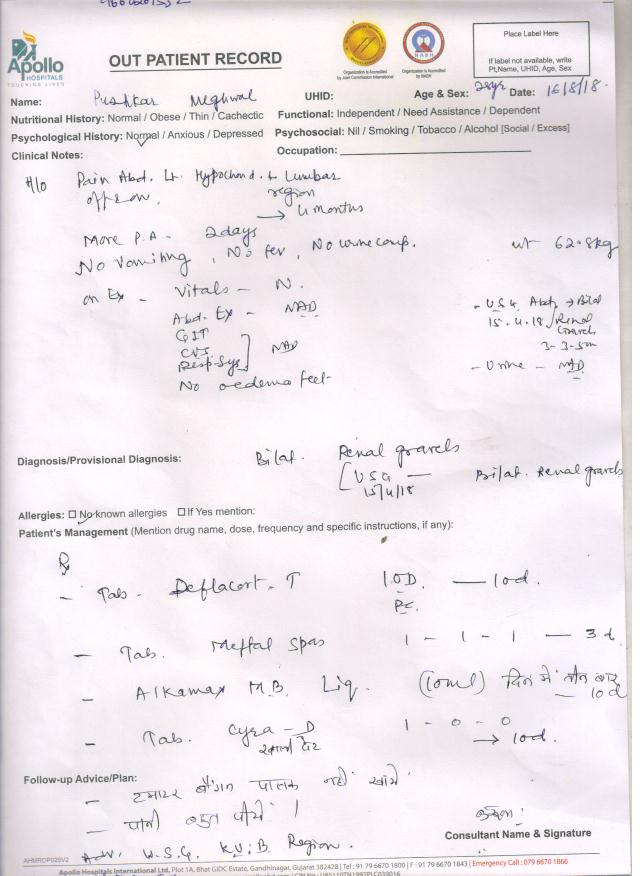 Apollo
HOSPITALS
TOUCHING LIVES
OUT PATIENT RECORD
Organization is Accredited
by Joint Commission International
Organization is Accredited
by NABH
Place Label Here
If label not available, write
Pt.Name, UHID, Age, Sex
Name: Pushkar Meghwal UHID: Age & Sex: 28yr Date: 16/8/18.
Nutritional History: Normal / Obese / Thin / Cachectic Functional: Independent / Need Assistance / Dependent
Psychological History: Normal / Anxious / Depressed Psychosocial: Nil / Smoking / Tobacco / Alcohol [Social / Excess]
Clinical Notes: Occupation:
H/o Pain Abd. Lt. Hypochond. & Lumbar
region
off & on. → 4 months
More P.A - 2days
No Vomiting, No fev, No urine comp. wt 62.8kg
on Ex - Vitals - N.
Abd. Ex - NAD
GIT
CVS
Resp. Sys] NAD
No oedema feet
- USG. Abd → Bilat
15.4.18 / Renal
Gravels
3-3.5m
- Urine - NAD.
Diagnosis/Provisional Diagnosis: Bilat. Renal gravels
[USG — Bilat. Renal gravels
15/4/18
Allergies: No known allergies If Yes mention:
Patient's Management (Mention drug name, dose, frequency and specific instructions, if any):
Rx
- Tab. Deflacort. T 1 OD. — 10d.
PC.
- Tab. Meftal Spas 1 - 1 - 1 — 3d.
- Alkamax M.B. Liq. (10ml) दिन में तीन बार
— 10d
- Tab. Cyra - D 1 - 0 - 0
खाली पेट → 10d.
Follow-up Advice/Plan:
- टमाटर बैंगन पालक नहीं खायें
- पानी बहुत पीयें ।
Adv. U.S.G. KU;B Region.
Consultant Name & Signature
AHMROP025V2
Apollo Hospitals International Ltd, Plot 1A, Bhat GIDC Estate, Gandhinagar, Gujarat 382428 | Tel : 91 79 6670 1800 | F : 91 79 6670 1843 | Emergency Call : 079 6670 1866